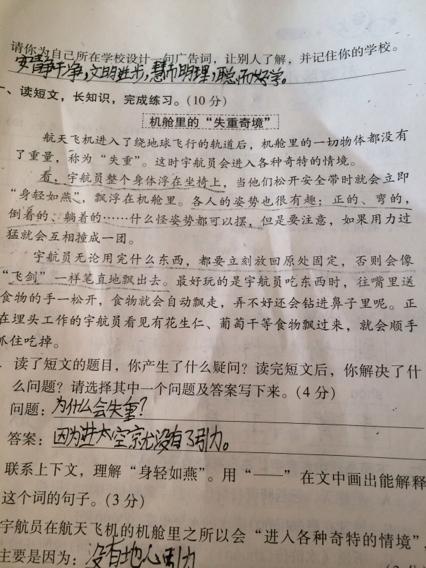 请你为自己所在学校设计一句广告词，让别人了解，并记住你的学校。
安静干净，文明进步，慧而明理，聪而好学。
一、读短文，长知识，完成练习。（10分）
机舱里的“失重奇境”
航天飞机进入了绕地球飞行的轨道后，机舱里的一切物体都没有
了重量，称为“失重”。这时宇航员会进入各种奇特的情境。
看，宇航员整个身体浮在坐椅上，当他们松开安全带时就会立即
“身轻如燕”，飘浮在机舱里。各人的姿势也很有趣：正的、弯的，
倒着的、躺着的……什么怪姿势都可以摆，但是要注意，如果用力过
猛就会互相撞成一团。
宇航员无论用完什么东西，都要立刻放回原处固定，否则会像
“飞剑”一样笔直地飘出去。最好玩的是宇航员吃东西时，往嘴里送
食物的手一松开，食物就会自动飘走，弄不好还会钻进鼻子里呢。正
在埋头工作的宇航员看见有花生仁、葡萄干等食物飘过来，就会顺手
抓住吃掉。
读了短文的题目，你产生了什么疑问？读完短文后，你解决了什
么问题？请选择其中一个问题及答案写下来。（4分）
问题：为什么会失重？
答案：因为进太空京尤没有了引力。
联系上下文，理解“身轻如燕”。用“——”在文中画出能解释
这个词的句子。（3分）
宇航员在航天飞机的机舱里之所以会“进入各种奇特的情境”，
主要是因为：没有地心引力